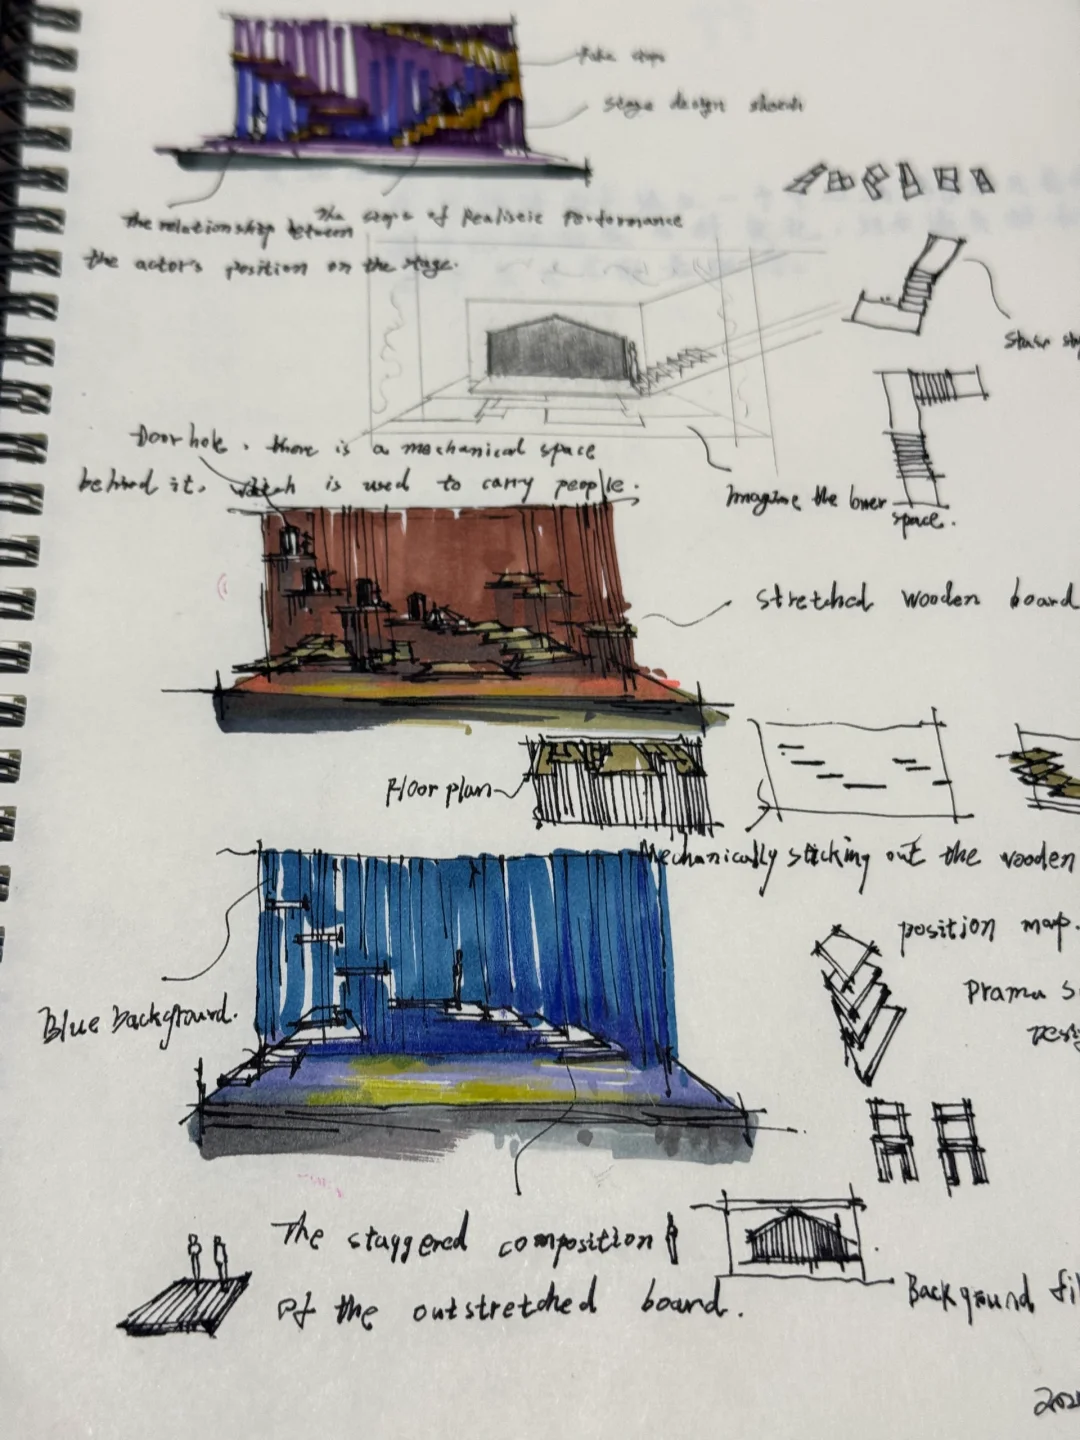 Fake steps
Stage design sketch
The steps of Realistic Performance
The relationship between
the actor's position on the stage.
Door hole, there is a mechanical space
behind it, which is used to carry people.
Imagine the
space.
stretched wooden board
Floor plan
Mechanically sticking out the wooden
position map.
Blue background.
The staggered composition
of the outstretched board.
Background